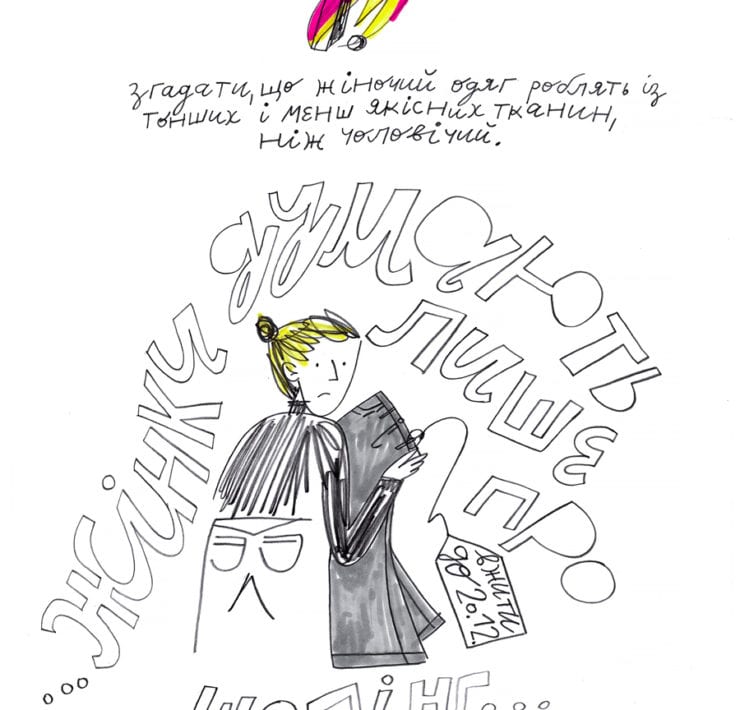 згадати, що жіночий одяг роблять із
тонших і менш якісних тканин,
ніж чоловічий.
...жінки думають
лише про
вжити
до 20.12.
шопінг...